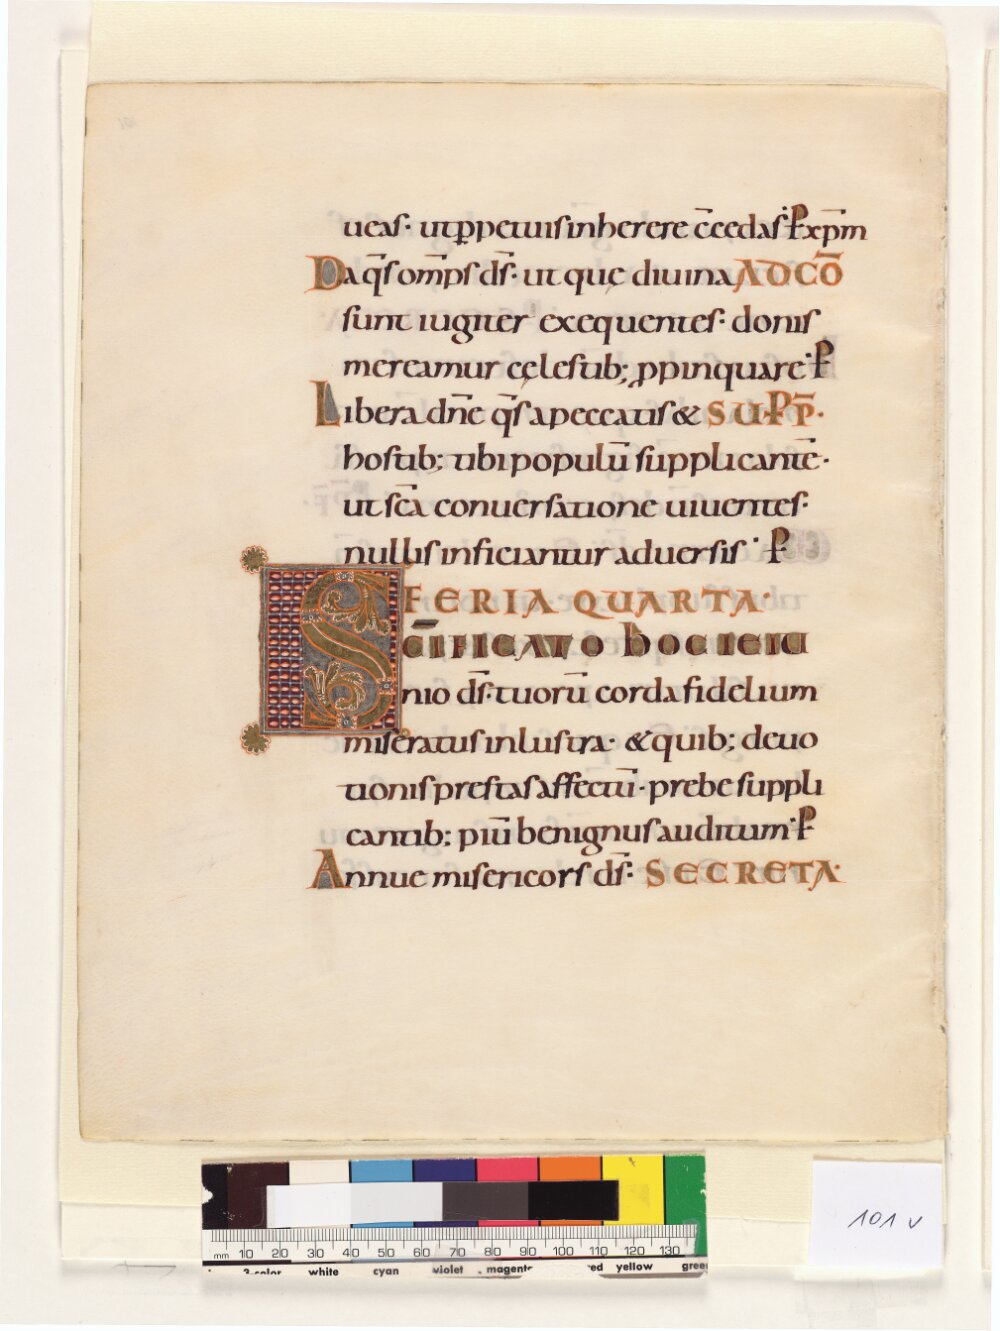 ueas· ut ꝑpetuis inherere c̄cedas· P̱ xp̄m
Da q̄s om̄ps ds̄· ut que diuina AD CŌ
sunt iugiter exequentes· donis
mereamur cęlestib; ꝓpinquare· P̱
Libera dn̄e q̄s a peccatis & SUP P̄·
hostib; tibi populū supplicantē·
ut sc̄a conuersatione uiuentes·
nullis inficiantur aduersis· P̱
FERIA QUARTA·
SC̄IFICATO hOC IEIU
nio ds̄· tuorū corda fidelium
miseratus inlustra· & quib; deuo
tionis prestas affectū· prebe suppli
cantib; piū benignus auditum· P̱
Annue misericors ds̄· SECRETA·
101 v
mm 10 20 30 40 50 60 70 80 90 100 110 120 130
3-color white cyan violet magenta red yellow green